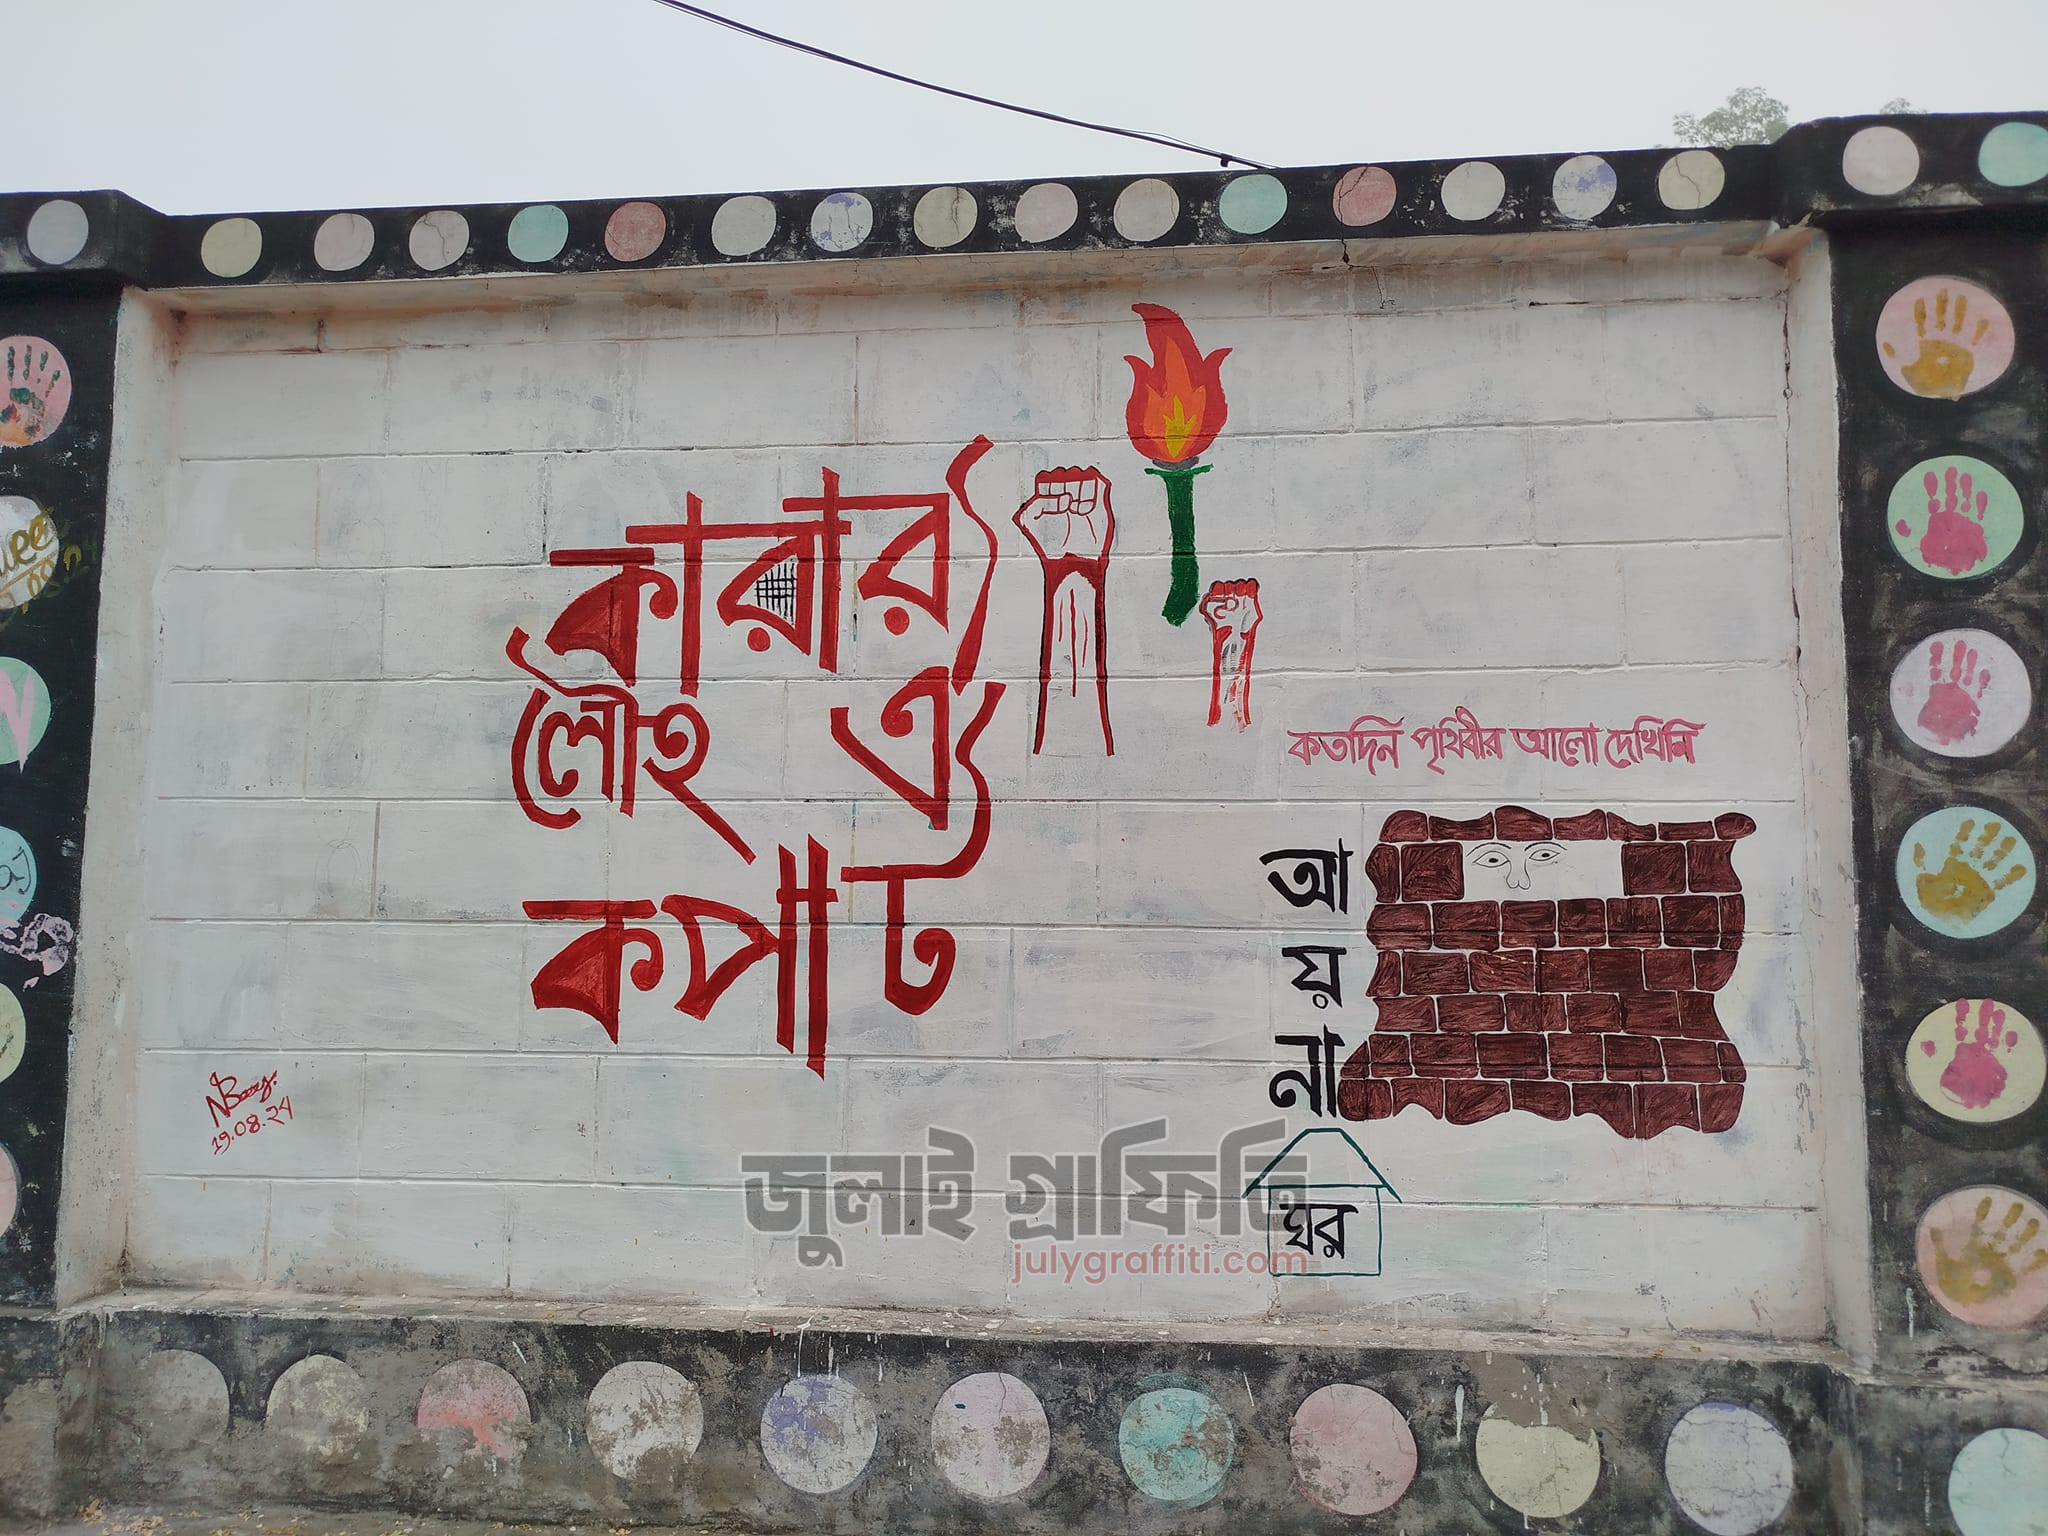 কারার
ঐ
লৌহ
কপাট
কতদিন পৃথিবীর আলো দেখিনি
আ
য়
না
ঘর
19.08.24
জুলাই গ্রাফিতি
julygraffiti.com